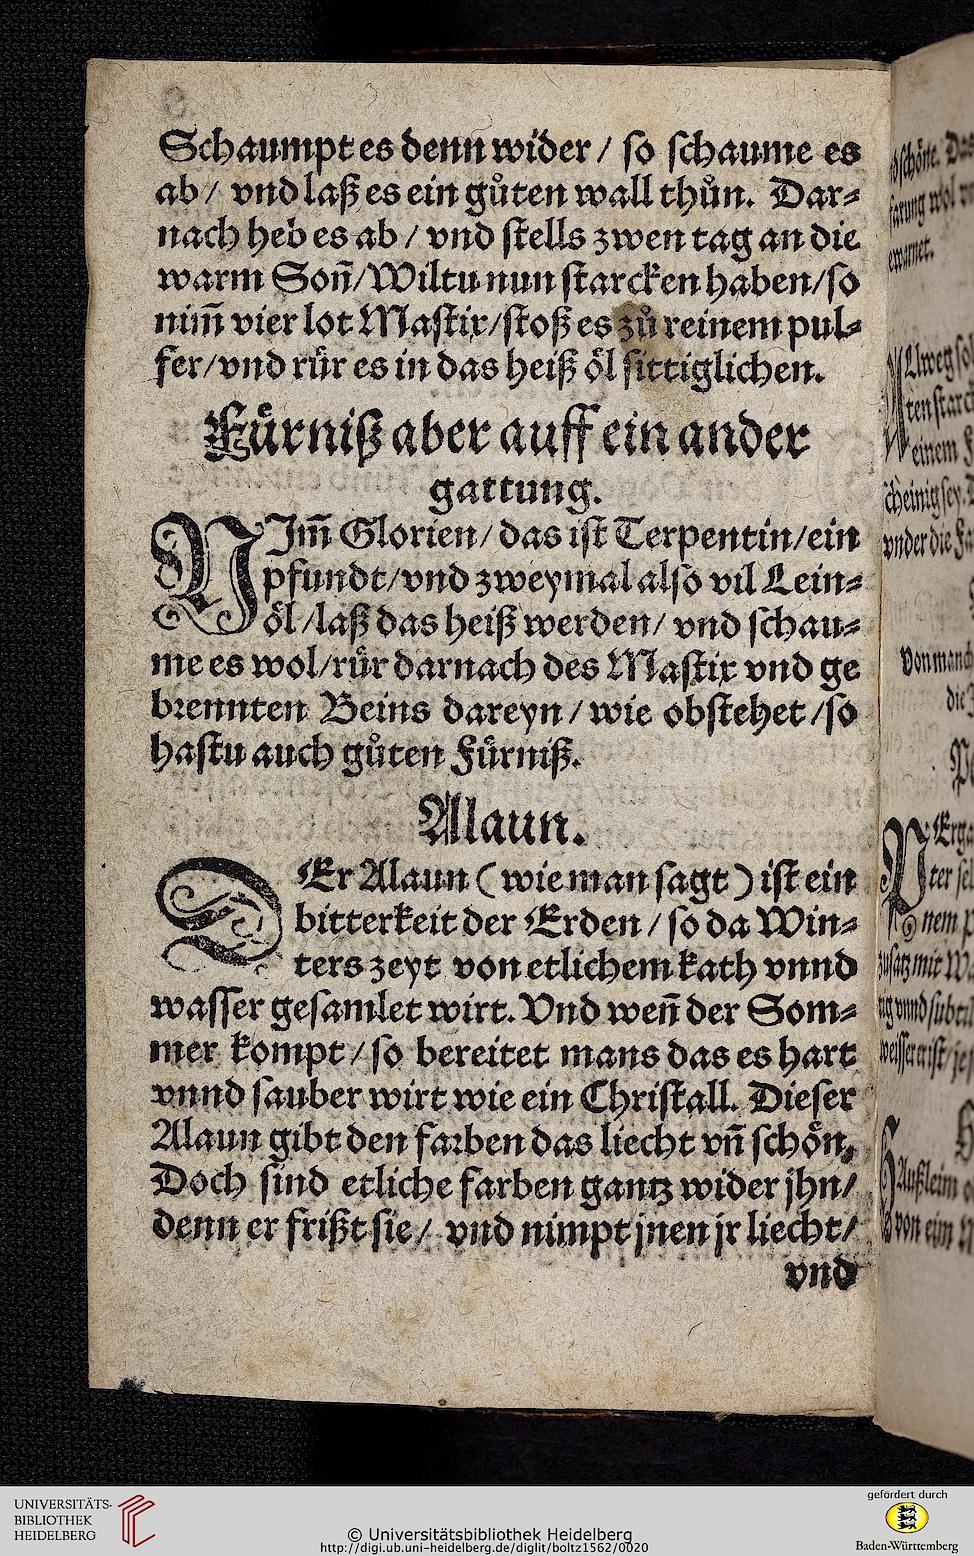 Schaumpt es denn wider / so schaume es
ab / vnd laß es ein gůten wall thůn. Dar⸗
nach heb es ab / vnd stells zwen tag an die
warm Soñ / Wiltu nun starcken haben / so
nim̃ vier lot Mastix / stoß es zů reinem pul⸗
fer / vnd rür es in das heiß öl sittiglichen.
Fürniß aber auff ein ander
gattung.
NIm̃ Glorien / das ist Terpentin / ein
pfundt / vnd zweymal also vil Lein⸗
öl / laß das heiß werden / vnd schau⸗
me es wol / rür darnach des Mastix vnd ge
brennten Beins dareyn / wie obstehet / so
hastu auch gůten Fürniß.
Alaun.
DEr Alaun ( wie man sagt ) ist ein
bitterkeit der Erden / so da Win⸗
ters zeyt von etlichem kath vnnd
wasser gesamlet wirt. Vnd weñ der Som⸗
mer kompt / so bereitet mans das es hart
vnnd sauber wirt wie ein Christall. Dieser
Alaun gibt den farben das liecht vñ schön,
Doch sind etliche farben gantz wider jhn /
denn er frißt sie / vnd nimpt jnen jr liecht /
vnd
UNIVERSITÄTS-
BIBLIOTHEK
HEIDELBERG
© Universitätsbibliothek Heidelberg
http://digi.ub.uni-heidelberg.de/diglit/boltz1562/0020
gefördert durch
Baden-Württemberg